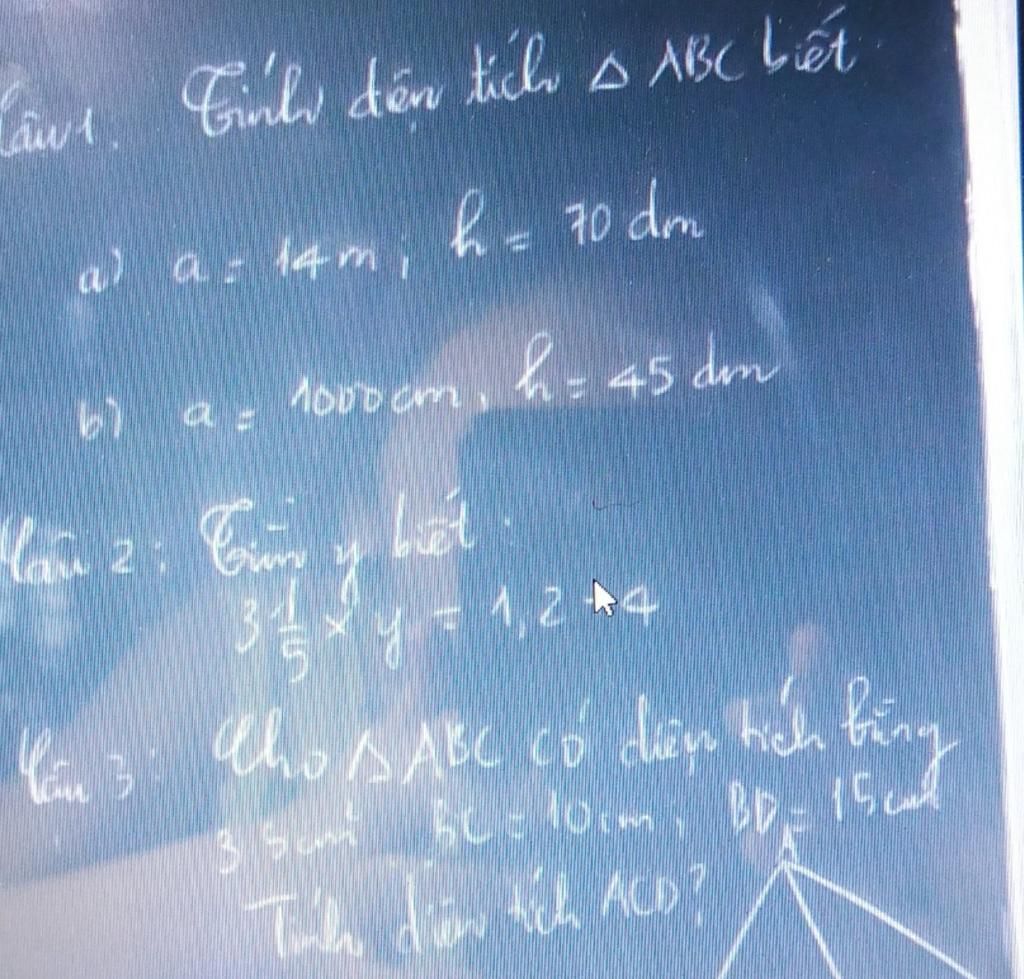 Câu 1. Tính diện tích Δ ABC biết
a) a = 14 m; h = 70 dm
b) a = 1000 cm, h = 45 dm
Câu 2: Tìm y biết.
3 1/5 × y = 1,2 4
Câu 3: Cho Δ ABC có diện tích bằng
35 cm² BC = 10 cm; BD = 15 cm
Tính diện tích ACD?
A